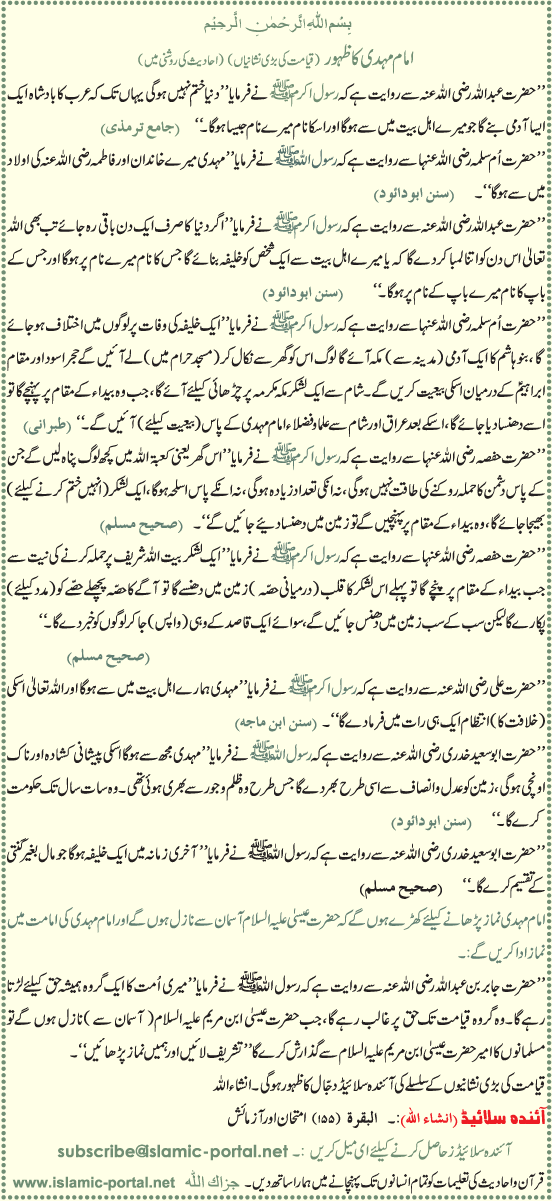 بِسْمِ اللهِ الرَّحْمٰنِ الرَّحِيْمِ
امام مہدی کا ظہور (قیامت کی بڑی نشانیاں) (احادیث کی روشنی میں)
’’حضرت عبداللہ رضی اللہ عنہ سے روایت ہے کہ رسول اکرم ﷺ نے فرمایا ’’دنیا ختم نہیں ہوگی یہاں تک کہ عرب کا بادشاہ ایک
ایسا آدمی بنے گا جو میرے اہل بیت میں سے ہوگا اور اسکا نام میرے نام جیسا ہوگا۔‘‘ (جامع ترمذی)
’’حضرت اُم سلمہ رضی اللہ عنہا سے روایت ہے کہ رسول اللہ ﷺ نے فرمایا ’’مہدی میرے خاندان اور فاطمہ رضی اللہ عنہ کی اولاد
میں سے ہوگا‘‘۔ (سنن ابودائود)
’’حضرت عبداللہ رضی اللہ عنہ سے روایت ہے کہ رسول اکرم ﷺ نے فرمایا ’’اگر دنیا کا صرف ایک دن باقی رہ جائے تب بھی اللہ
تعالیٰ اس دن کو اتنا لمبا کردے گا کہ یا میرے اہل بیت سے ایک شخص کو خلیفہ بنائے گا جس کا نام میرے نام پر ہوگا اور جس کے
باپ کا نام میرے باپ کے نام پر ہوگا۔‘‘ (سنن ابودائود)
’’حضرت اُم سلمہ رضی اللہ عنہا سے روایت ہے کہ رسول اکرم ﷺ نے فرمایا ’’ایک خلیفہ کی وفات پر لوگوں میں اختلاف ہوجائے
گا، بنو ہاشم کا ایک آدمی (مدینہ سے) مکہ آئے گا لوگ اس کو گھر سے نکال کر (مسجد حرام میں) لے آئیں گے حجر اسود اور مقام
ابراہیمؑ کے درمیان اسکی بیعت کریں گے۔ شام سے ایک لشکر مکہ مکرمہ پر چڑھائی کیلئے آئے گا، جب وہ بیداء کے مقام پر پہنچے گا تو
اسے دھنسا دیا جائے گا، اسکے بعد عراق اور شام سے علما و فضلاء امام مہدی کے پاس (بیعت کیلئے) آئیں گے۔‘‘ (طبرانی)
’’حضرت حفصہ رضی اللہ عنہا سے روایت ہے کہ رسول اکرم ﷺ نے فرمایا ’’اس گھر یعنی کعبۃ اللہ میں کچھ لوگ پناہ لیں گے جن
کے پاس دشمن کا حملہ روکنے کی طاقت نہیں ہوگی، نہ انکی تعداد زیادہ ہوگی، نہ انکے پاس اسلحہ ہوگا، ایک لشکر (انہیں ختم کرنے کیلئے)
بھیجا جائے گا، وہ بیداء کے مقام پر پہنچیں گے تو زمین میں دھنسا دیئے جائیں گے‘‘۔ (صحیح مسلم)
’’حضرت حفصہ رضی اللہ عنہا سے روایت ہے کہ رسول اکرم ﷺ نے فرمایا ’’ایک لشکر بیت اللہ شریف پر حملہ کرنے کی نیت سے
جب بیداء کے مقام پر پہنچے گا تو پہلے اس لشکر کا قلب (درمیانی حصّہ) زمین میں دھنسے گا تو آگے کا حصّہ پچھلے حصّے کو (مدد کیلئے)
پکارے گا لیکن سب کے سب زمین میں دھنس جائیں گے، سوائے ایک قاصد کے وہی (واپس) جا کر لوگوں کو خبر دے گا۔‘‘
(صحیح مسلم)
’’حضرت علی رضی اللہ عنہ سے روایت ہے کہ رسول اکرم ﷺ نے فرمایا ’’مہدی ہمارے اہل بیت میں سے ہوگا اور اللہ تعالیٰ اسکی
(خلافت کا) انتظام ایک ہی رات میں فرما دے گا‘‘۔ (سنن ابن ماجه)
’’حضرت ابو سعید خدری رضی اللہ عنہ سے روایت ہے کہ رسول اللہ ﷺ نے فرمایا ’’مہدی مجھ سے ہوگا اسکی پیشانی کشادہ اور ناک
اونچی ہوگی، زمین کو عدل و انصاف سے اسی طرح بھر دے گا جس طرح وہ ظلم و جور سے بھری ہوئی تھی۔ وہ سات سال تک حکومت
کرے گا۔‘‘ (سنن ابودائود)
’’حضرت ابو سعید خدری رضی اللہ عنہ سے روایت ہے کہ رسول اللہ ﷺ نے فرمایا ’’آخری زمانہ میں ایک خلیفہ ہوگا جو مال بغیر گنتی
کے تقسیم کرے گا۔‘‘ (صحیح مسلم)
امام مہدی نماز پڑھانے کیلئے کھڑے ہوں گے کہ حضرت عیسیٰ علیہ السلام آسمان سے نازل ہوں گے اور امام مہدی کی امامت میں
نماز ادا کریں گے:۔
’’حضرت جابر بن عبداللہ رضی اللہ عنہ سے روایت ہے کہ رسول اللہ ﷺ نے فرمایا ’’میری اُمت کا ایک گروہ ہمیشہ حق کیلئے لڑتا
رہے گا۔ وہ گروہ قیامت تک حق پر غالب رہے گا، جب حضرت عیسیٰ ابن مریم علیہ السلام (آسمان سے) نازل ہوں گے تو
مسلمانوں کا امیر حضرت عیسیٰ ابن مریم علیہ السلام سے گذارش کرے گا ’’تشریف لائیں اور ہمیں نماز پڑھائیں‘‘۔
قیامت کی بڑی نشانیوں کے سلسلے کی آئندہ سلائیڈ دجّال کا ظہور ہوگی۔ انشاء اللہ
آئندہ سلائیڈ (انشاء اللہ):۔ البقرة (۱۵۵) امتحان اور آزمائش
آئندہ سلائیڈز حاصل کرنے کیلئے ای میل کریں :۔ subscribe@islamic-portal.net
قرآن و احادیث کی تعلیمات کو تمام انسانوں تک پہچانے میں ہمارا ساتھ دیں۔ جزاك الله www.islamic-portal.net